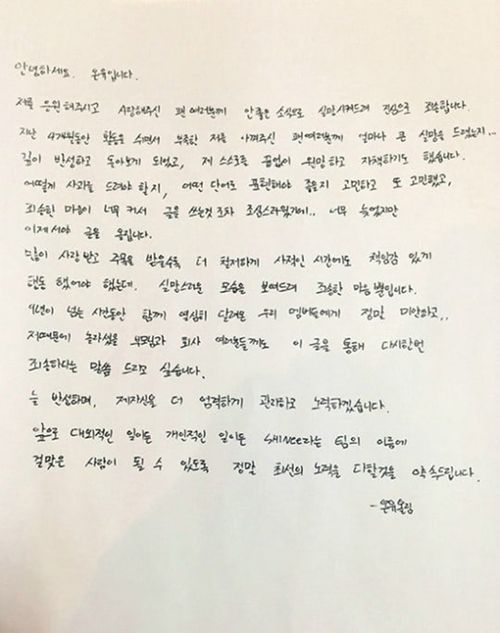 안녕하세요. 온유입니다.
저를 응원해주시고 사랑해주신 팬 여러분께 안좋은 소식으로 실망시켜드려 진심으로 죄송합니다.
지난 4개월동안 활동을 쉬면서 부족한 저를 아껴주신 팬여러분께 얼마나 큰 실망을 드렸는지...
깊이 반성하고 돌아보게 되었고, 제 스스로를 끊임없이 원망하고 자책하기도 했습니다.
어떻게 사과를 드려야 할지, 어떤 단어로 표현해야 좋을지 고민하고 또 고민했고,
죄송한 마음이 너무 커서 글을 쓰는것 조차 조심스러웠기에.. 너무 늦었지만
이제서야 글을 올립니다.
많이 사랑 받고 주목을 받을수록 더 철저하게 사적인 시간에도 책임감 있게
행동 했어야 했는데. 실망스러운 모습을 보여드려 죄송한 마음뿐입니다.
9년이 넘는 시간동안 함께 열심히 달려온 우리 멤버들에게 정말 미안하고,,
저때문에 놀라셨을 부모님과 회사 여러분들께도 이 글을 통해 다시한번
죄송하다는 말씀 드리고 싶습니다.
늘 반성하며, 제자신을 더 엄격하게 관리하고 노력하겠습니다.
앞으로 대외적인 일이든 개인적인 일이든 SHINee라는 팀의 이름에
걸맞은 사람이 될 수 있도록 정말 최선의 노력을 다할것을 약속드립니다.
-온유올림